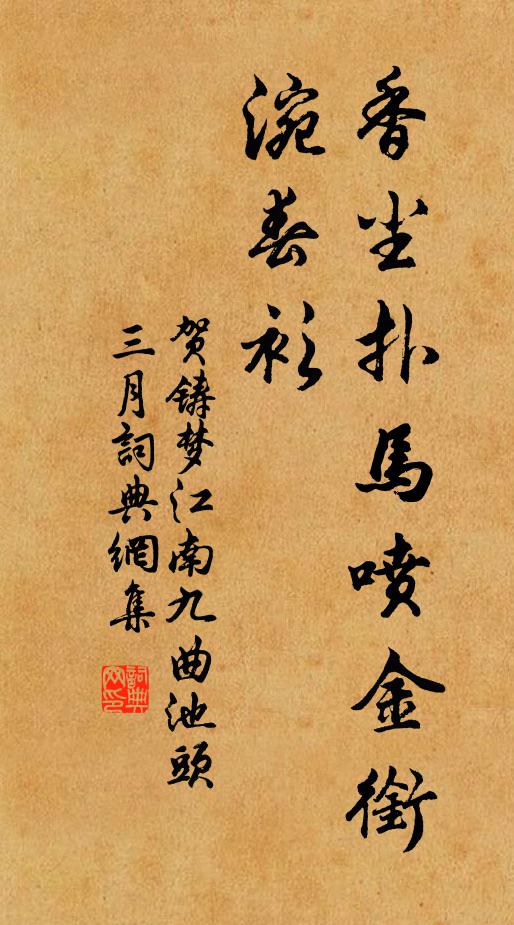 香尘扑馬喷金銜
涴春衫
贺铸梦江南九曲池頭
三月詞典網集
詞典网印